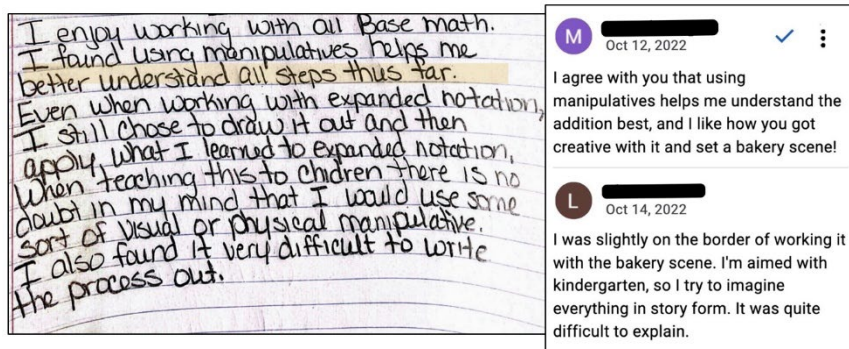 I enjoy working with all Base math.
I found using manipulatives helps me
better understand all steps thus far.
Even when working with expanded notation,
I still chose to draw it out and then
apply, what I learned to expanded notation,
When teaching this to chidren there is no
doubt in my mind that I would use some
sort of visual or physical manipulative.
I also found it very difficult to write
the process out.
M
Oct 12, 2022
I agree with you that using
manipulatives helps me understand the
addition best, and I like how you got
creative with it and set a bakery scene!
L
Oct 14, 2022
I was slightly on the border of working it
with the bakery scene. I'm aimed with
kindergarten, so I try to imagine
everything in story form. It was quite
difficult to explain.